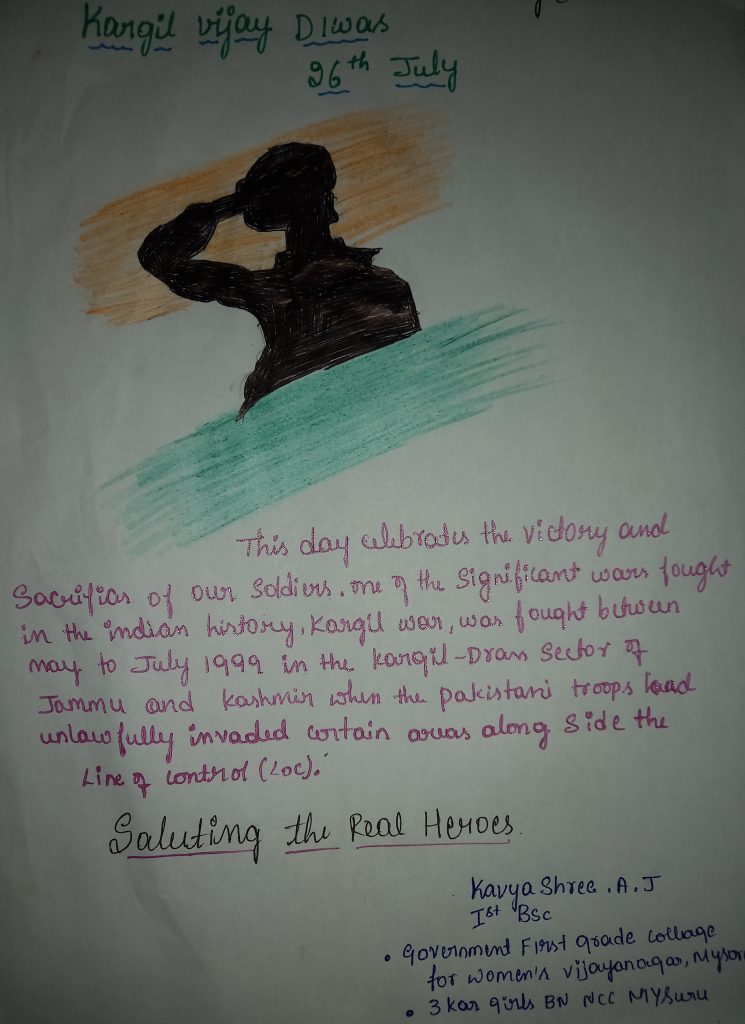 Kargil vijay Diwas
26th July
This day celebrates the victory and
Sacrifies of our Soldiers. one of the Significant wars fought
in the indian history, Kargil war, was fought between
may to July 1999 in the kargil-Drass Sector of
Jammu and kashmir when the pakistani troops haad
unlawfully invaded certain areas along Side the
Line of control (LOC).
Saluting the Real Heroes.
Kavya Shree .A.J
Ist BSc
• Government First grade collage
for women's vijayanagar,
• 3 kar girls BN NCC MYSuru